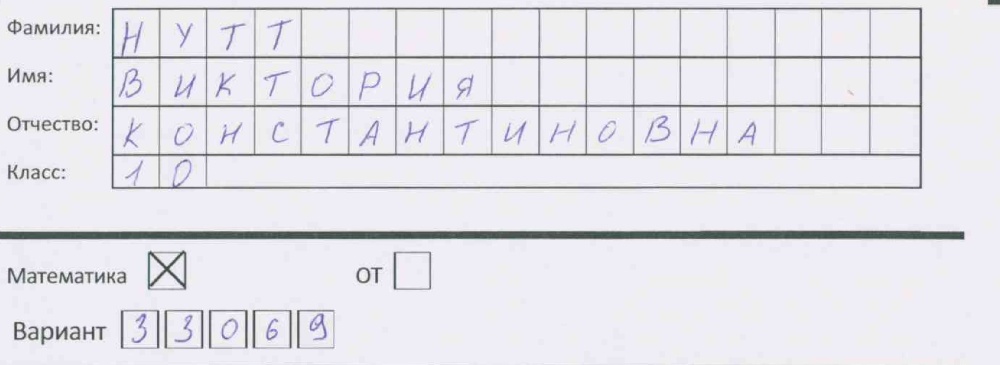 Фамилия: НУТТ
Имя: ВИКТОРИЯ
Отчество: КОНСТАНТИНОВНА
Класс: 10
Математика ☒ ОТ ☐
Вариант 33069